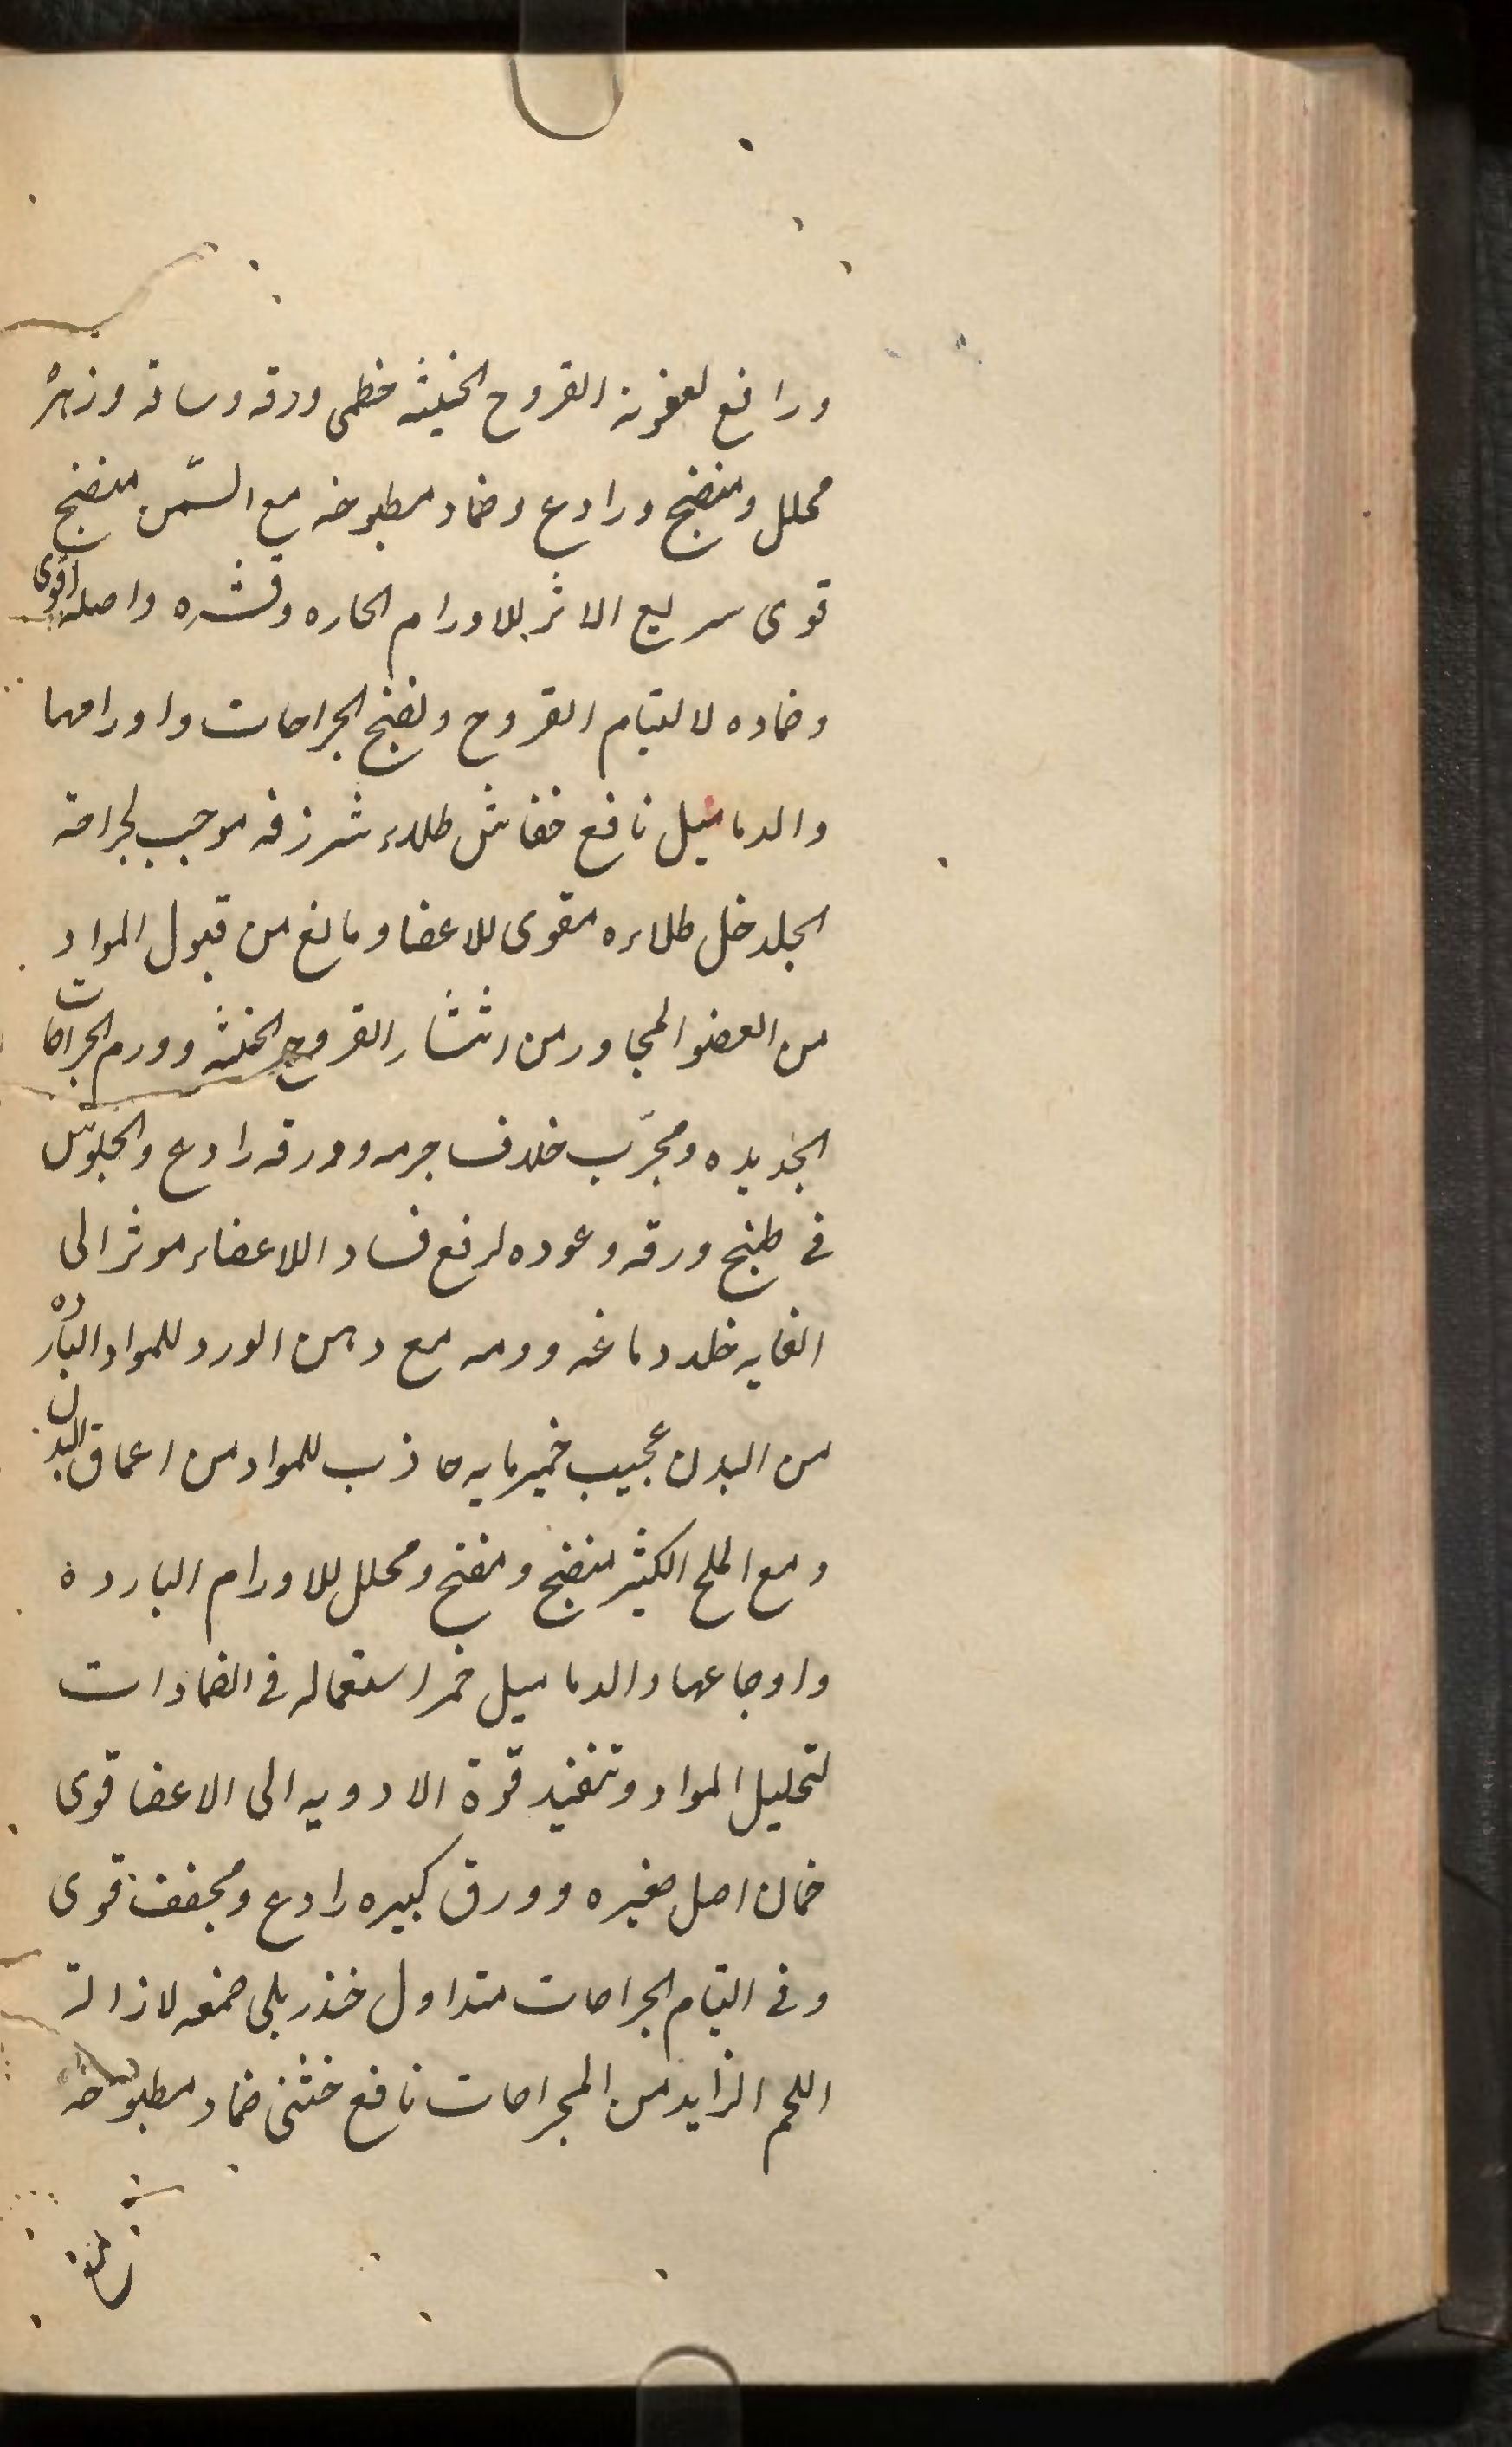 ورافع لعفونة القروح الخبیثه خطمی ورقه وساقه وزهره
محلل ومنضج ورادع وضماد مطبوخه مع السّمن منضج
قوی سریع الاثر للاورام الحاره وقشره واصله اقوی
وضماده لالتیام القروح ونضج الجراحات واورامها
والدمامیل نافع خفاش طلاء شرزقه موجب لجراحة
الجلد خل طلاءه مقوی للاعضا ومانع من قبول المواد
من العضو المجاور من انتشار القروح الخبثه وورم الجراحات
الجدیده ومجرّب خلاف جرمه وورقه رادع والجلوس
فی طبخ ورقه وعوده لرفع فساد اللاعضاء موثر الی
الغایه خلد دماغه ودمه مع دهن الورد للمواد البارده
من البدن عجیب خمیرمایه جاذب للمواد من اعماق البدن
ومع الملح الکثیر منضج ومفتح ومحلل للاورام البارده
واوجاعها والدمامیل خمر استعماله فی الضمادات
لتحلیل المواد وتنفید قوة الادویه الی الاعضا قوی
خمان اصل صغیره وورق کبیره رادع ومجفف قوی
وفی التیام الجراحات متداول خندریلی صمغه لازالة
اللحم الزاید من الجراحات نافع خنثی ضماد مطبوخه